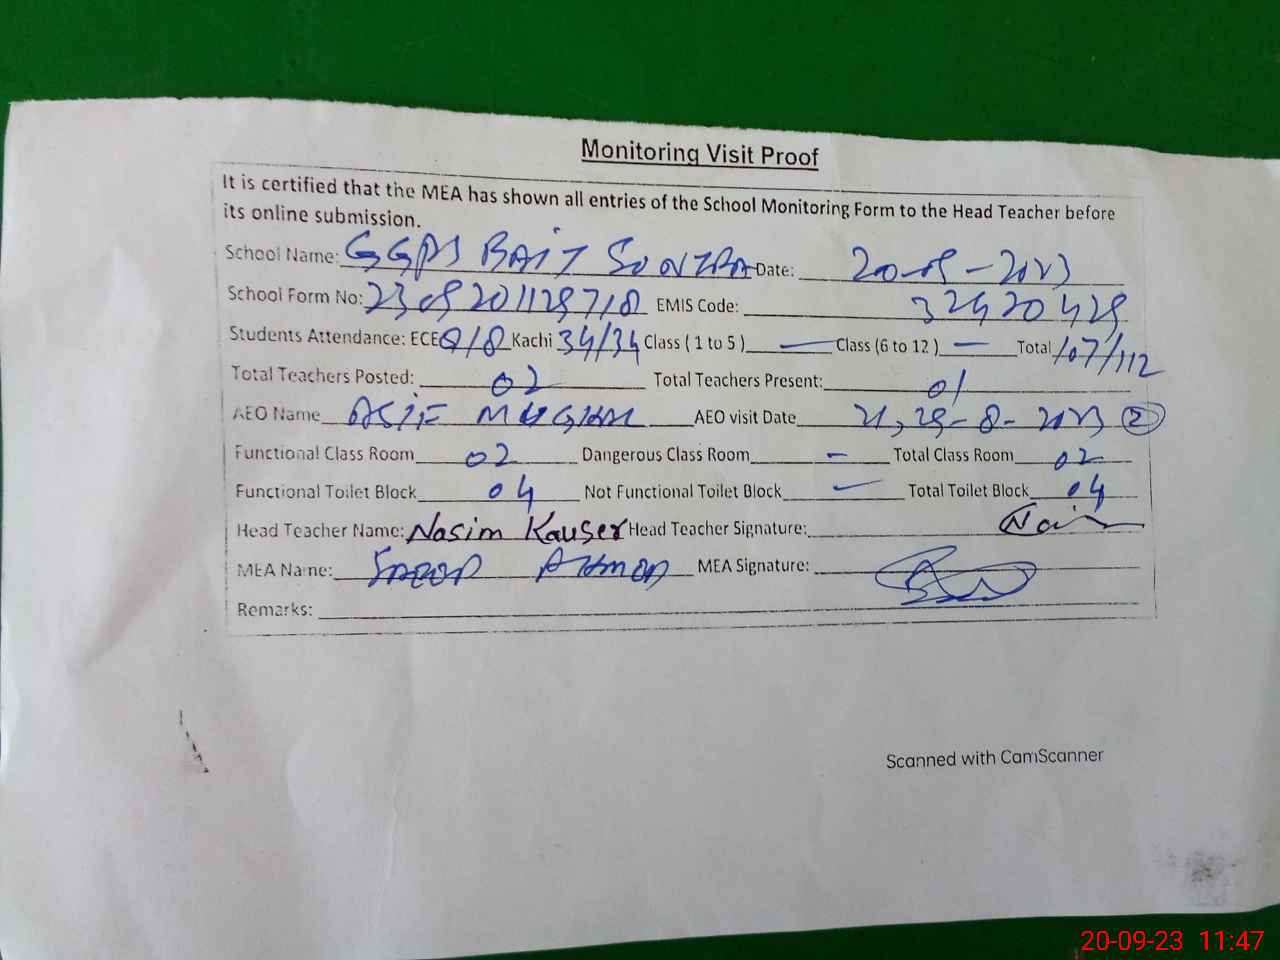 Monitoring Visit Proof
It is certified that the MEA has shown all entries of the School Monitoring Form to the Head Teacher before
its online submission.
School Name: GGPS BAIT SONTRA Date: 20-09-2023
School Form No: EMIS Code: 32420429
Students Attendance: ECE 8/8 Kachi 34/34 Class ( 1 to 5 ) — Class (6 to 12 ) — Total 107/112
Total Teachers Posted: 02 Total Teachers Present: 01
AEO Name ASIF MUGHAL AEO visit Date 21, 29-8-2023 2
Functional Class Room 02 Dangerous Class Room - Total Class Room 02
Functional Toilet Block 04 Not Functional Toilet Block — Total Toilet Block 04
Head Teacher Name: Nasim Kauser Head Teacher Signature:
MEA Name: SAEED AHMED MEA Signature:
Remarks:
Scanned with CamScanner
20-09-23 11:47